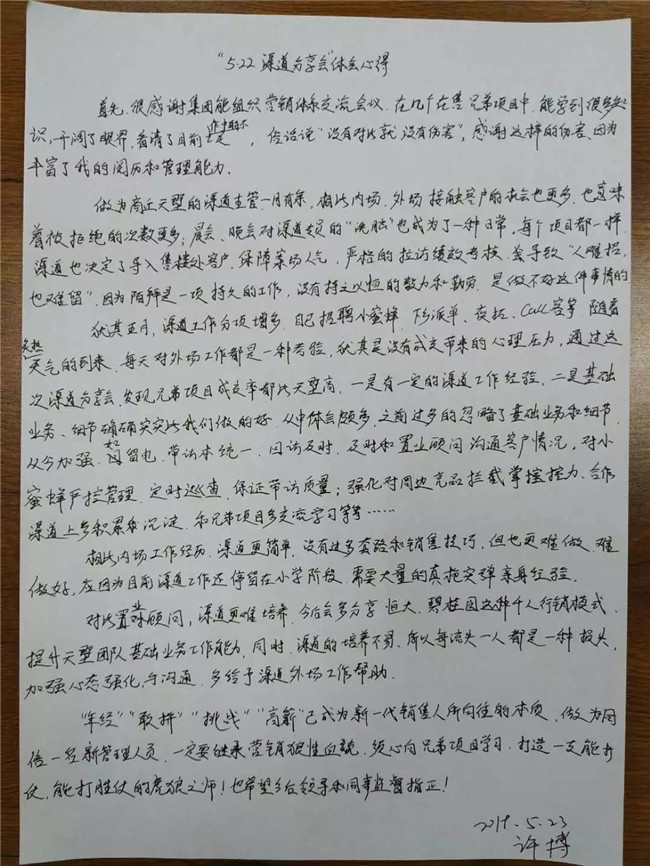 “5.22渠道分享会”体会心得
首先,很感谢集团能组织营销体系交流会议。在几个在售兄弟项目中,能学到很多知
识,开阔了眼界,看清了目前工作中的不足,俗话说“没有对比就没有伤害”,感谢这样的伤害,因为
丰富了我的阅历和管理能力。
做为商丘天墅的渠道主管一月有余,相比内场,外场接触客户的机会也更多,也意味
着被拒绝的次数更多;晨会、晚会对渠道专员的“洗脑”也成为了一种日常,每个项目都一样,
渠道也决定了导入售楼处客户,保障案场人气,严格的拉访绩效考核,会导致“人难招,
也难留”,因为陌拜是一项持久的工作,没有持之以恒的毅力和勤劳,是做不好这件事情的
尤其五月,渠道工作分项增多,自己招聘小蜜蜂、下乡派单、夜拓、Call客等,随着
炎热
天气的到来,每天对外场工作都是一种考验,尤其是没有成交带来的心理压力,通过这
次渠道分享会,发现兄弟项目成交率都比天墅高,一是有一定的渠道工作经验,二是基础
业务、细节确确实实比我们做的好,从中体会颇多,之前过多的忽略了基础业务和细节,
从今加强,如留电、带访本统一,回访及时,及时和置业顾问沟通客户情况,对小
蜜蜂严控管理,定时巡查,保证带访质量;强化对周边竞品拦截掌握控力,合作
渠道上多积累和沉淀,和兄弟项目多交流学习等等……
相比内场工作经历,渠道更简单,没有过多套路和销售技巧,但也更难做,难
做好,应因为目前渠道工作还停留在小学阶段,需要大量的真枪实弹亲身经验。
对比置业顾问,渠道更难培养,今后会多分享恒大、碧桂园这种千人行销模式,
提升天墅团队基础业务工作能力,同时,渠道的培养不易,所以每流失一人都是一种损失,
加强心态强化与沟通,多给予渠道外场工作帮助。
“年经”“敢拼”“挑战”“高薪”已成为新一代销售人所向往的本质,做为同
信一名新管理人员,一定要继承营销狼性血统,须心向兄弟项目学习,打造一支能打
仗,能打胜仗的虎狼之师!也希望各位领导和同事监督指正!
5.23
许博